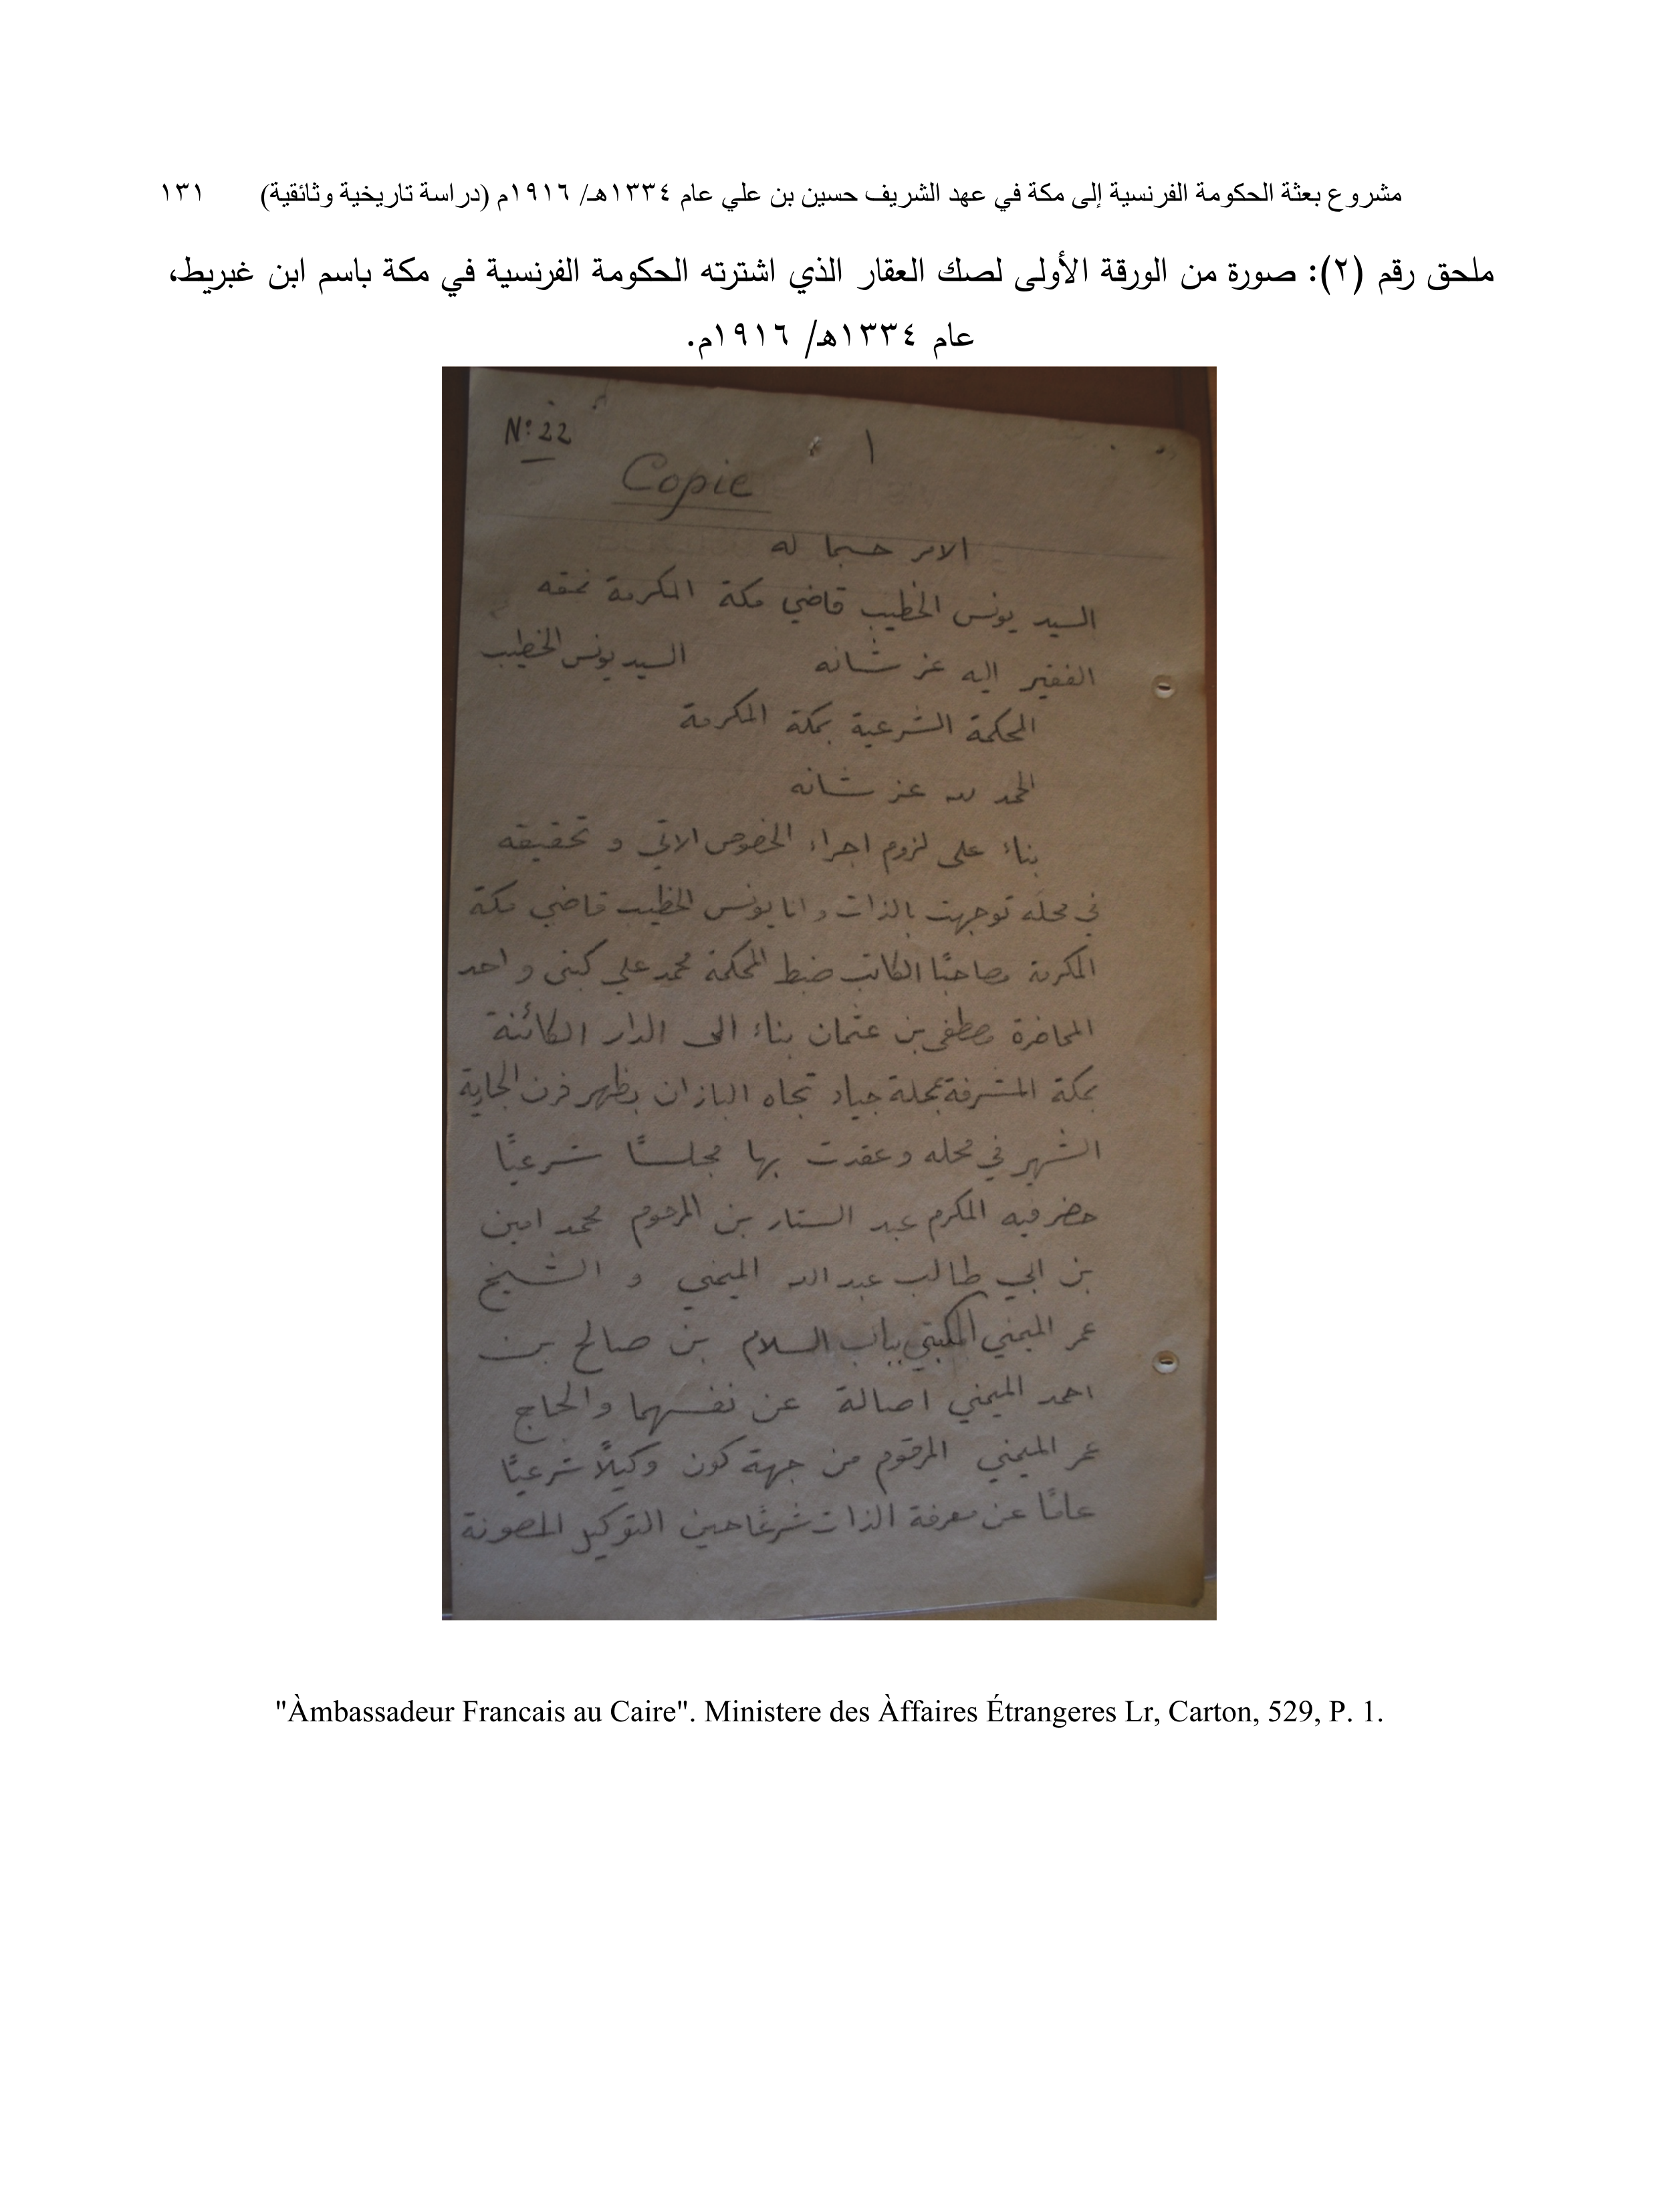 مشروع بعثة الحكومة الفرنسية إلى مكة في عهد الشريف حسين بن علي عام ١٣٣٤هـ/ ١٩١٦م (دراسة تاريخية وثائقية) ١٣١
ملحق رقم (٢): صورة من الورقة الأولى لصك العقار الذي اشترته الحكومة الفرنسية في مكة باسم ابن غبريط،
عام ١٣٣٤ه/ ١٩١٦م.
N: 22
١
Copie
الامر حسبما له
السيد يونس الخطيب قاضي مكة المكرمة نمقه
الفقير اليه عز شانه السيد يونس الخطيب
المحكمة الشرعية بمكة المكرمة
الحمد لله عز شانه
بناء على لزوم اجراء الخصوص الاتي و تحقيقه
في محله توجهت بالذات وانا يونس الخطيب قاضي مكة
المكرمة مصاحبًا الكاتب ضبط المحكمة محمد علي كبنى و احد
المحاضرة مصطفى بن عثمان بناء الى الدار الكائنة
بمكة المشرفة بمحلة جياد تجاه البازان بظهر فرن الجارية
الشهير في محله وعقدت بها مجلسًا شرعيًا
حضر فيه المكرم عبد الستار بن المرحوم محمد امين
بن ابي طالب عبد الله الميمني و الشيخ
عمر الميمني المكبتي بباب السلام بن صالح بن
احمد الميمني اصالة عن نفسهما والحاج
عمر الميمني المرقوم من جهة كون وكيلاً شرعيًا
عامًا عن معرفة الذات شرعًا حين التوكيل المصونة
"Àmbassadeur Francais au Caire". Ministere des Àffaires Étrangeres Lr, Carton, 529, P. 1.